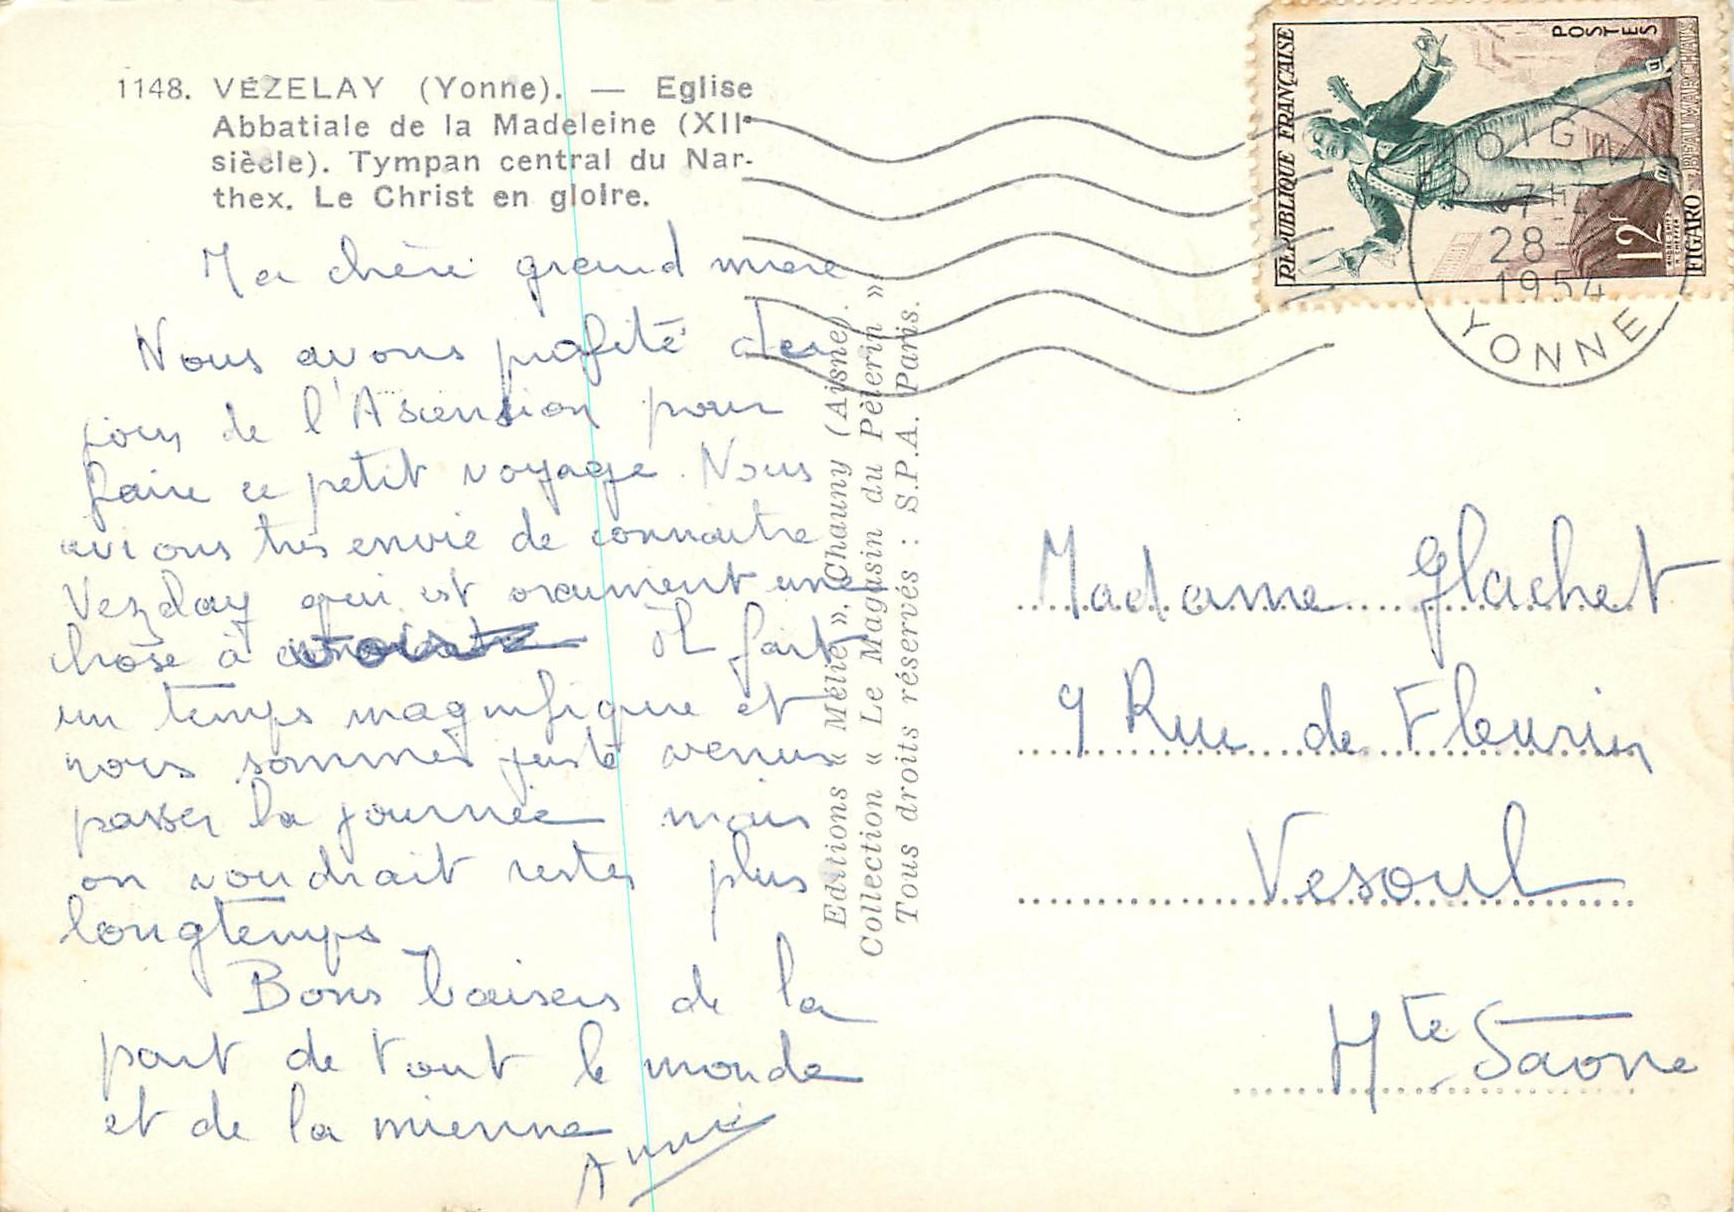 1148. VÉZELAY (Yonne). — Eglise
Abbatiale de la Madeleine (XIIe
siècle). Tympan central du Nar-
thex. Le Christ en gloire.
Ma chère grand mère
Nous avons profité des
jours de l'Ascension pour
faire ce petit voyage. Nous
avions très envie de connaitre
Vezelay qui est vraiment une
chose à voir. Il fait
un temps magnifique et
nous sommes juste venus
passer la journée mais
on voudrait rester plus
longtemps
Bons baisers de la
part de tout le monde
et de la mienne
Annie
Editions « Mélie », Chauny (Aisne).
Collection « Le Magasin du Pèlerin »
Tous droits réservés : S.P.A. Paris.
RÉPUBLIQUE FRANÇAISE
POSTES
BEAUMARCHAIS
FIGARO
12f
28-
1954
YONNE
Madame Glachet
9 Rue de Fleurier
Vesoul
Hte Saône